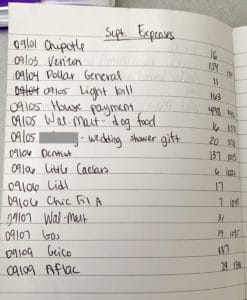 Sept. Expenses
09/01 Chipotle 16
09/03 Verizon 154
09/04 Dollar General 11
09/05 Light bill 163
09/05 House payment 498
09/05 Wal-Mart- dog food 16
09/05 - wedding shower gift 20
09/06 Dentist 137
09/06 Little Caesars 6
09/06 Lidl 17
09/06 Chic Fil A 7
09/07 Wal-Mart 31
09/07 Gas 19
09/09 Geico 187
09/09 Aflac 29